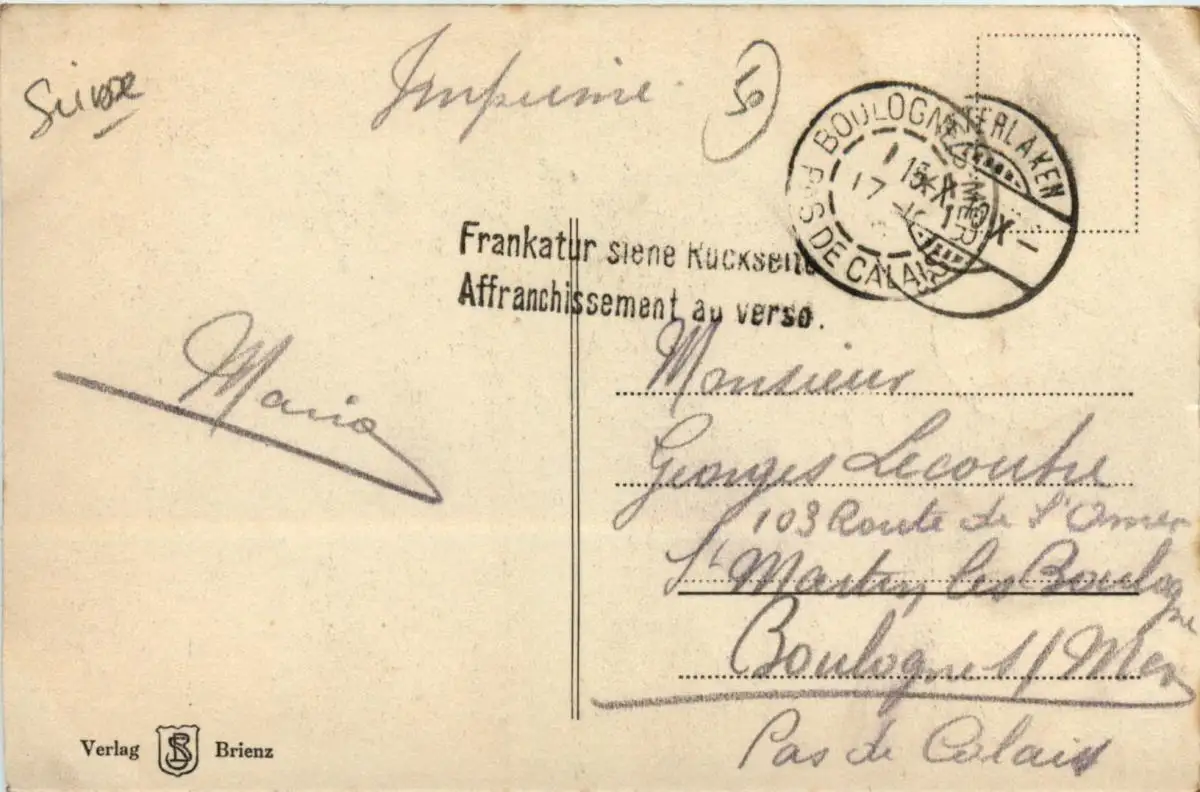 Suisse
Imprimé.
50
BOULOGNE S-MER
PAS DE CALAIS
17
INTERLAKEN
Frankatur siehe Rückseite
Affranchissement au verso.
Maria
Monsieur
Georges Lecoutre
103 Route de St Omer
St Martin les Boulogne
Boulogne s/ Mer
Pas de Calais
Verlag SR Brienz